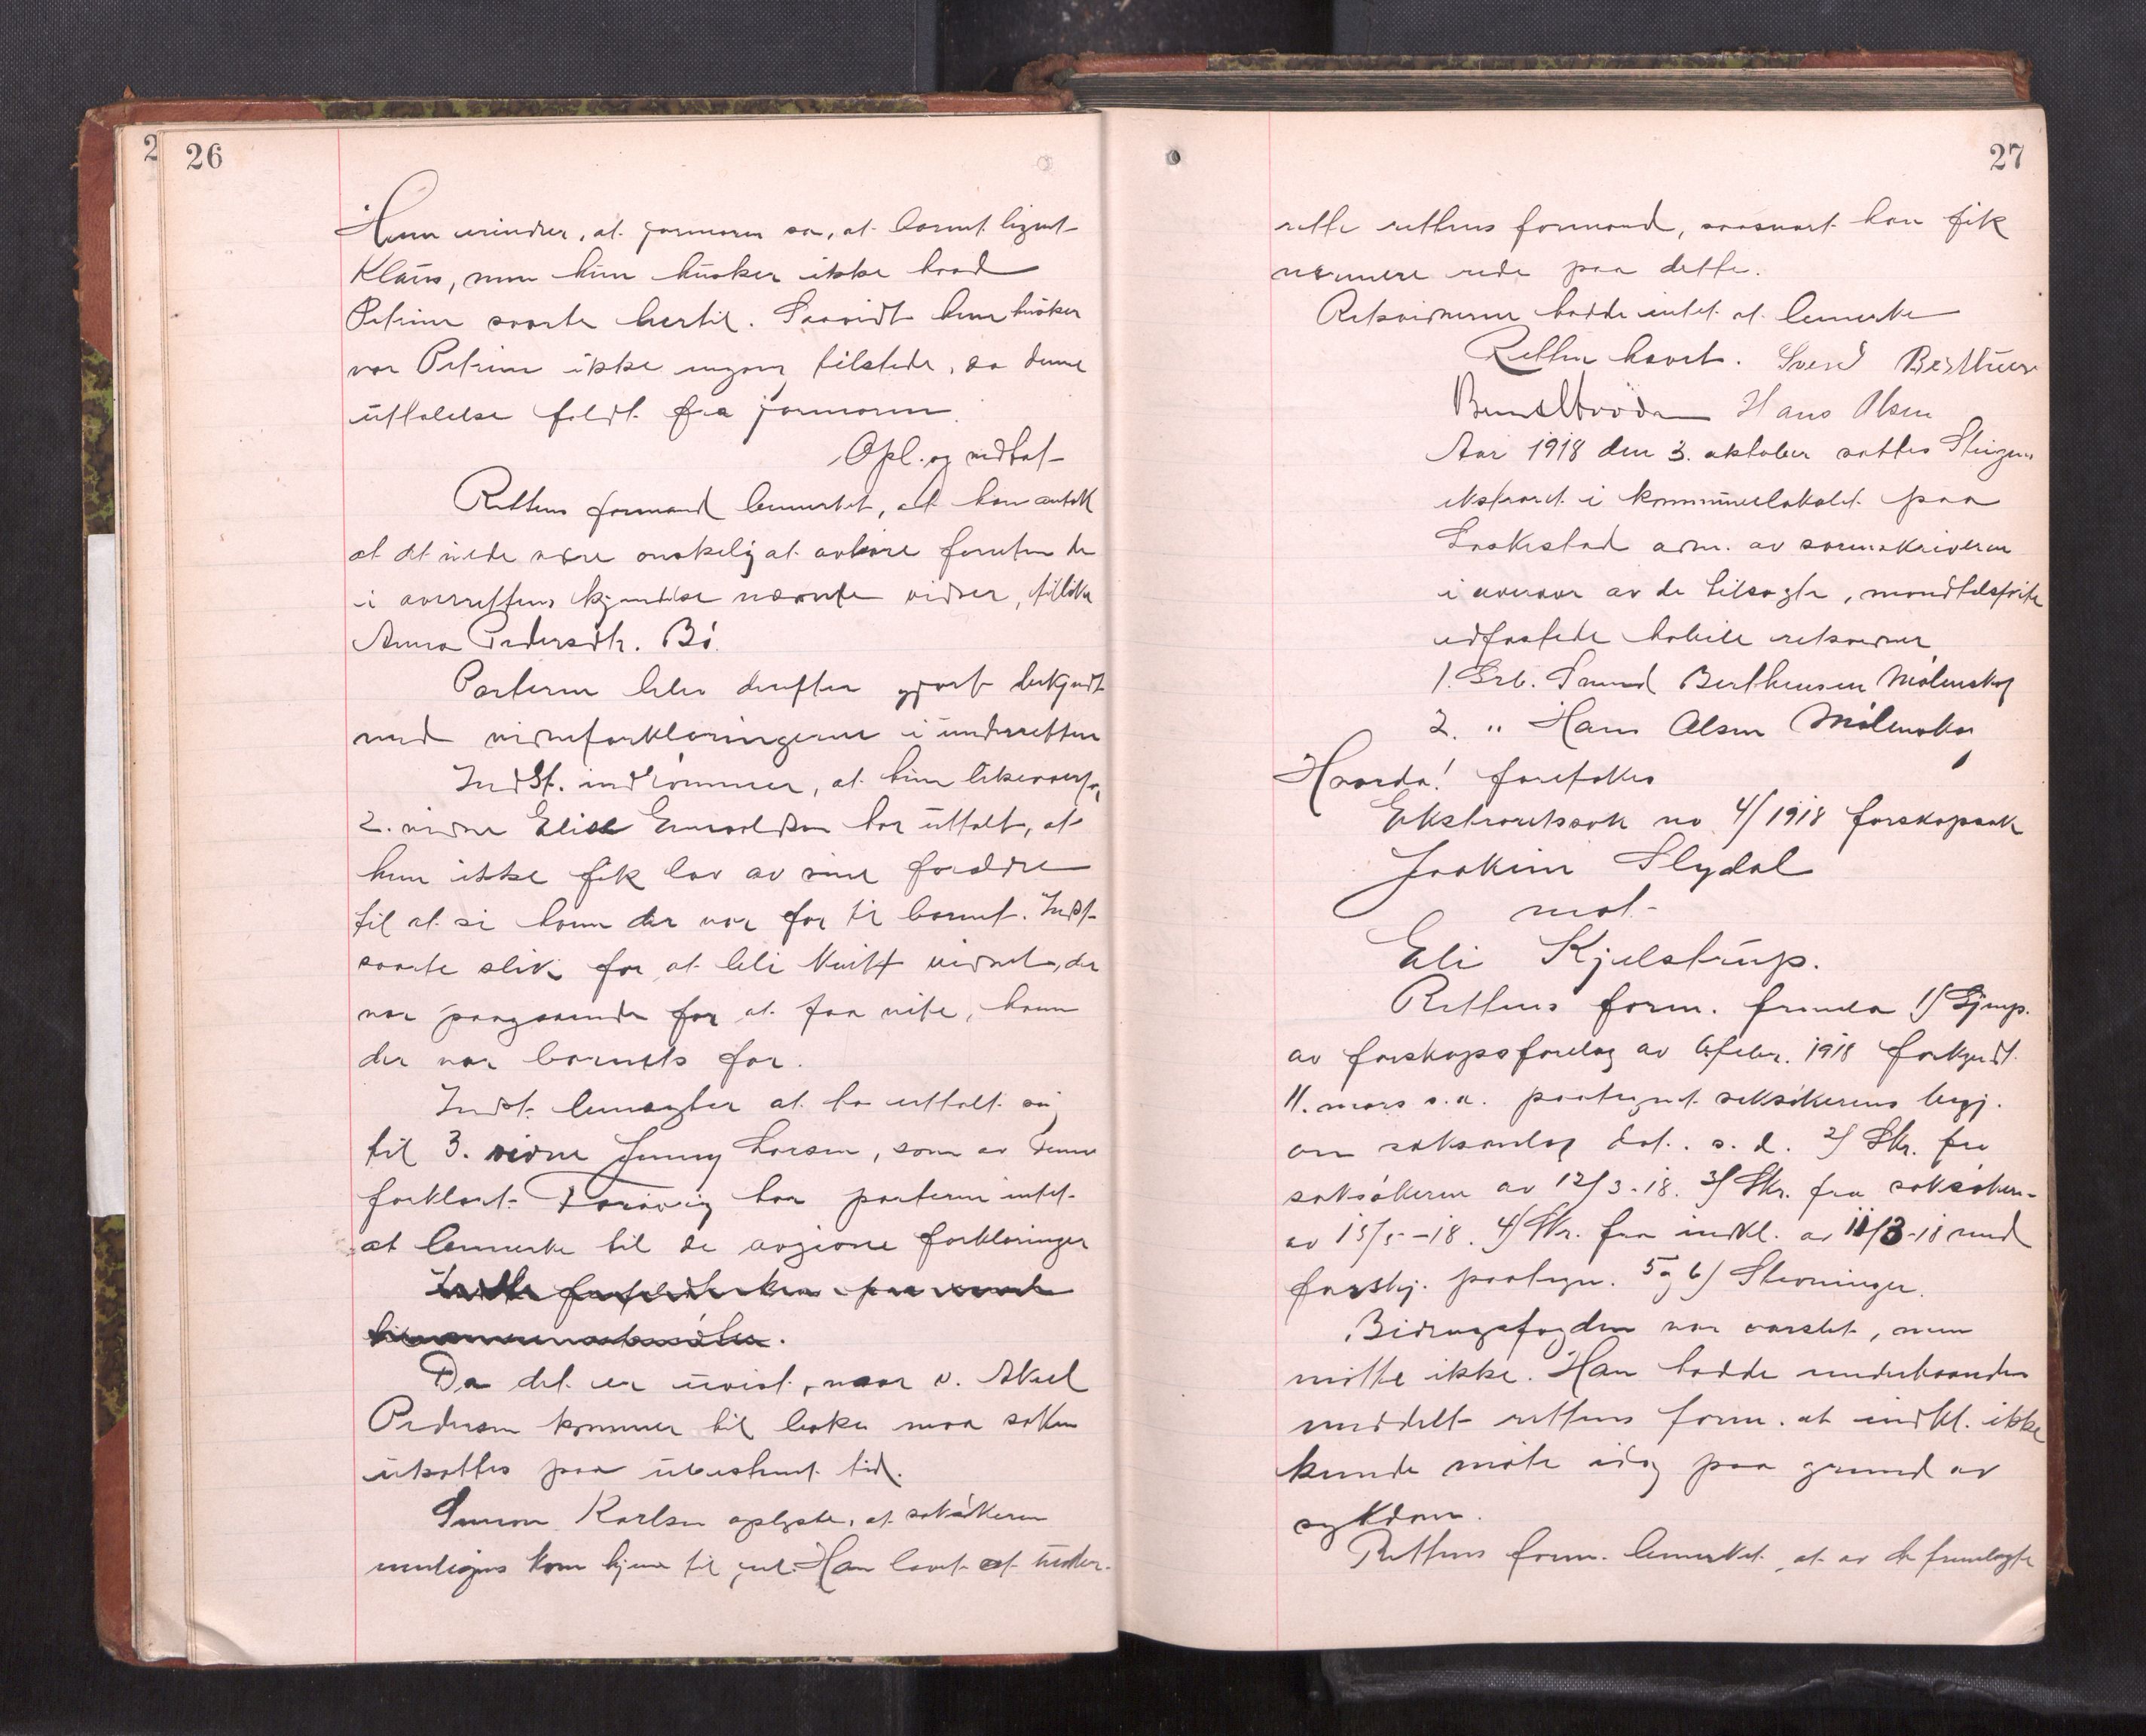 26
Hun erindrer, at jormoren sa, at barnet lignet
Klaus, men hun husker ikke hvad
Petrine svarte hertil. Saavidt hun husker
var Petrine ikke engang tilstede, da denne
uttalelse faldt fra jormoren.
Opl. og vedtat
Rettens formand bemerket, at han antok
at det vilde være ønskelig at avhøre foruten de
i overrettens kjendelse nævnte vidner, tillike
Anna Pedersdtr. Bø.
Parterne blev derefter gjort bekjendt
med vidneforklaringerne i underretten
Indst. indrømmer, at hun likeoverfor
2. vidne Elise Enevoldsen har uttalt, at
hun ikke fik lov av sine forældre
til at si hvem der var far til barnet. Indst.
svarte slik for at bli kvitt vidnet, der
var paagaaende for at faa vite, hvem
der var barnets far.
Indst. benegter at ha uttalt sig
til 3. vidne Jenny Larsen, som av denne
forklart. Forøvrig har parterne intet
at bemerke til de avgivne forklaringer
Da det er uvist, naar v. Aksel
Pedersen kommer tilbake maa saken
utsættes paa ubestemt tid.
Simon Karlsen oplyste, at saksøkeren
muligens kom hjem til jul. Han lovet at under-
27
rette rettens formand, saasnart han fik
nærmere rede paa dette.
Retsvidnerne hadde intet at bemerke
Retten hævet. Sverd Bertheus
Hans Olsen
Aar 1918 den 3. oktober sattes Steigens
ekstraret i kommunelokalet paa
Laskestad adm. av sorenskriveren
i overvær av de tilsagte, mandtalsførte
edfæstede habile retsvidner
1. Grb. Berthensen Mølnskog
2. " Hans Olsen Mølnskog
Hvorda! foretokes
Ekstraretssak no 4/1918 farskapssak
Joakim Slydal
mot
Eli Kjelstrup.
Rettens form. fremla 1/ Gjenp.
av farskapsforelæg av 6 febr. 1918 forkyndt
11. mars s. a. paategnet saksøkerens begj.
om saksanlæg dat. s. d. 2/ Skr. fra
saksøkeren av 12/3-18. 3/ Skr. fra saksøkeren
av 15/5-18. 4/ Skr. fra indkl. av 11/3-18 med
forskj. paategn. 5 og 6/ Stevninger.
Bidragsfogden var varslet, men
møtte ikke. Han hadde underhaanden
meddelt rettens form. at indkl. ikke
kunde møte idag paa grund av
sykdom.
Rettens form. bemerket, at av de fremlagte